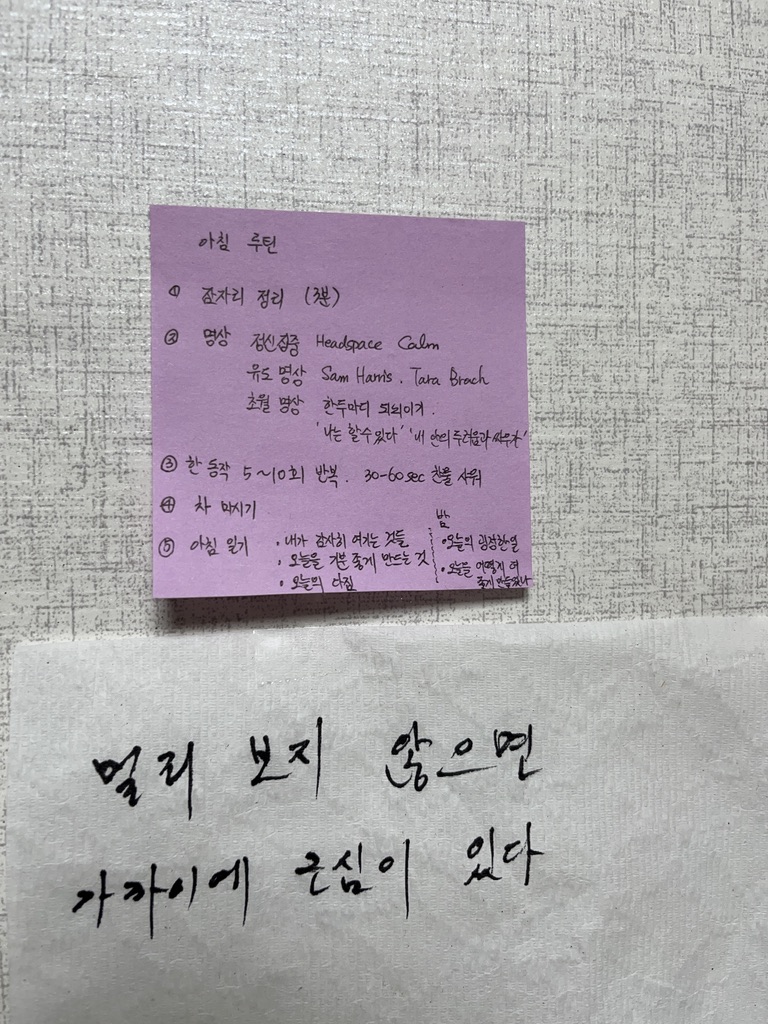 아침 루틴
① 잠자리 정리 (3분)
② 명상 정신집중 Headspace Calm
유도 명상 Sam Harris. Tara Brach
초월 명상 한두마디 되뇌이기.
'나는 할 수 있다' '내 안의 두려움과 싸우자'
③ 한 동작 5~10회 반복. 30-60sec 찬물 샤워
④ 차 마시기
⑤ 아침 일기 • 내가 감사히 여기는 것들
• 오늘을 기분 좋게 만드는 것
• 오늘의 다짐
밤
• 오늘의 굉장한 일
• 오늘을 어떻게 더
좋게 만들었나
멀리 보지 않으면
가까이에 근심이 있다